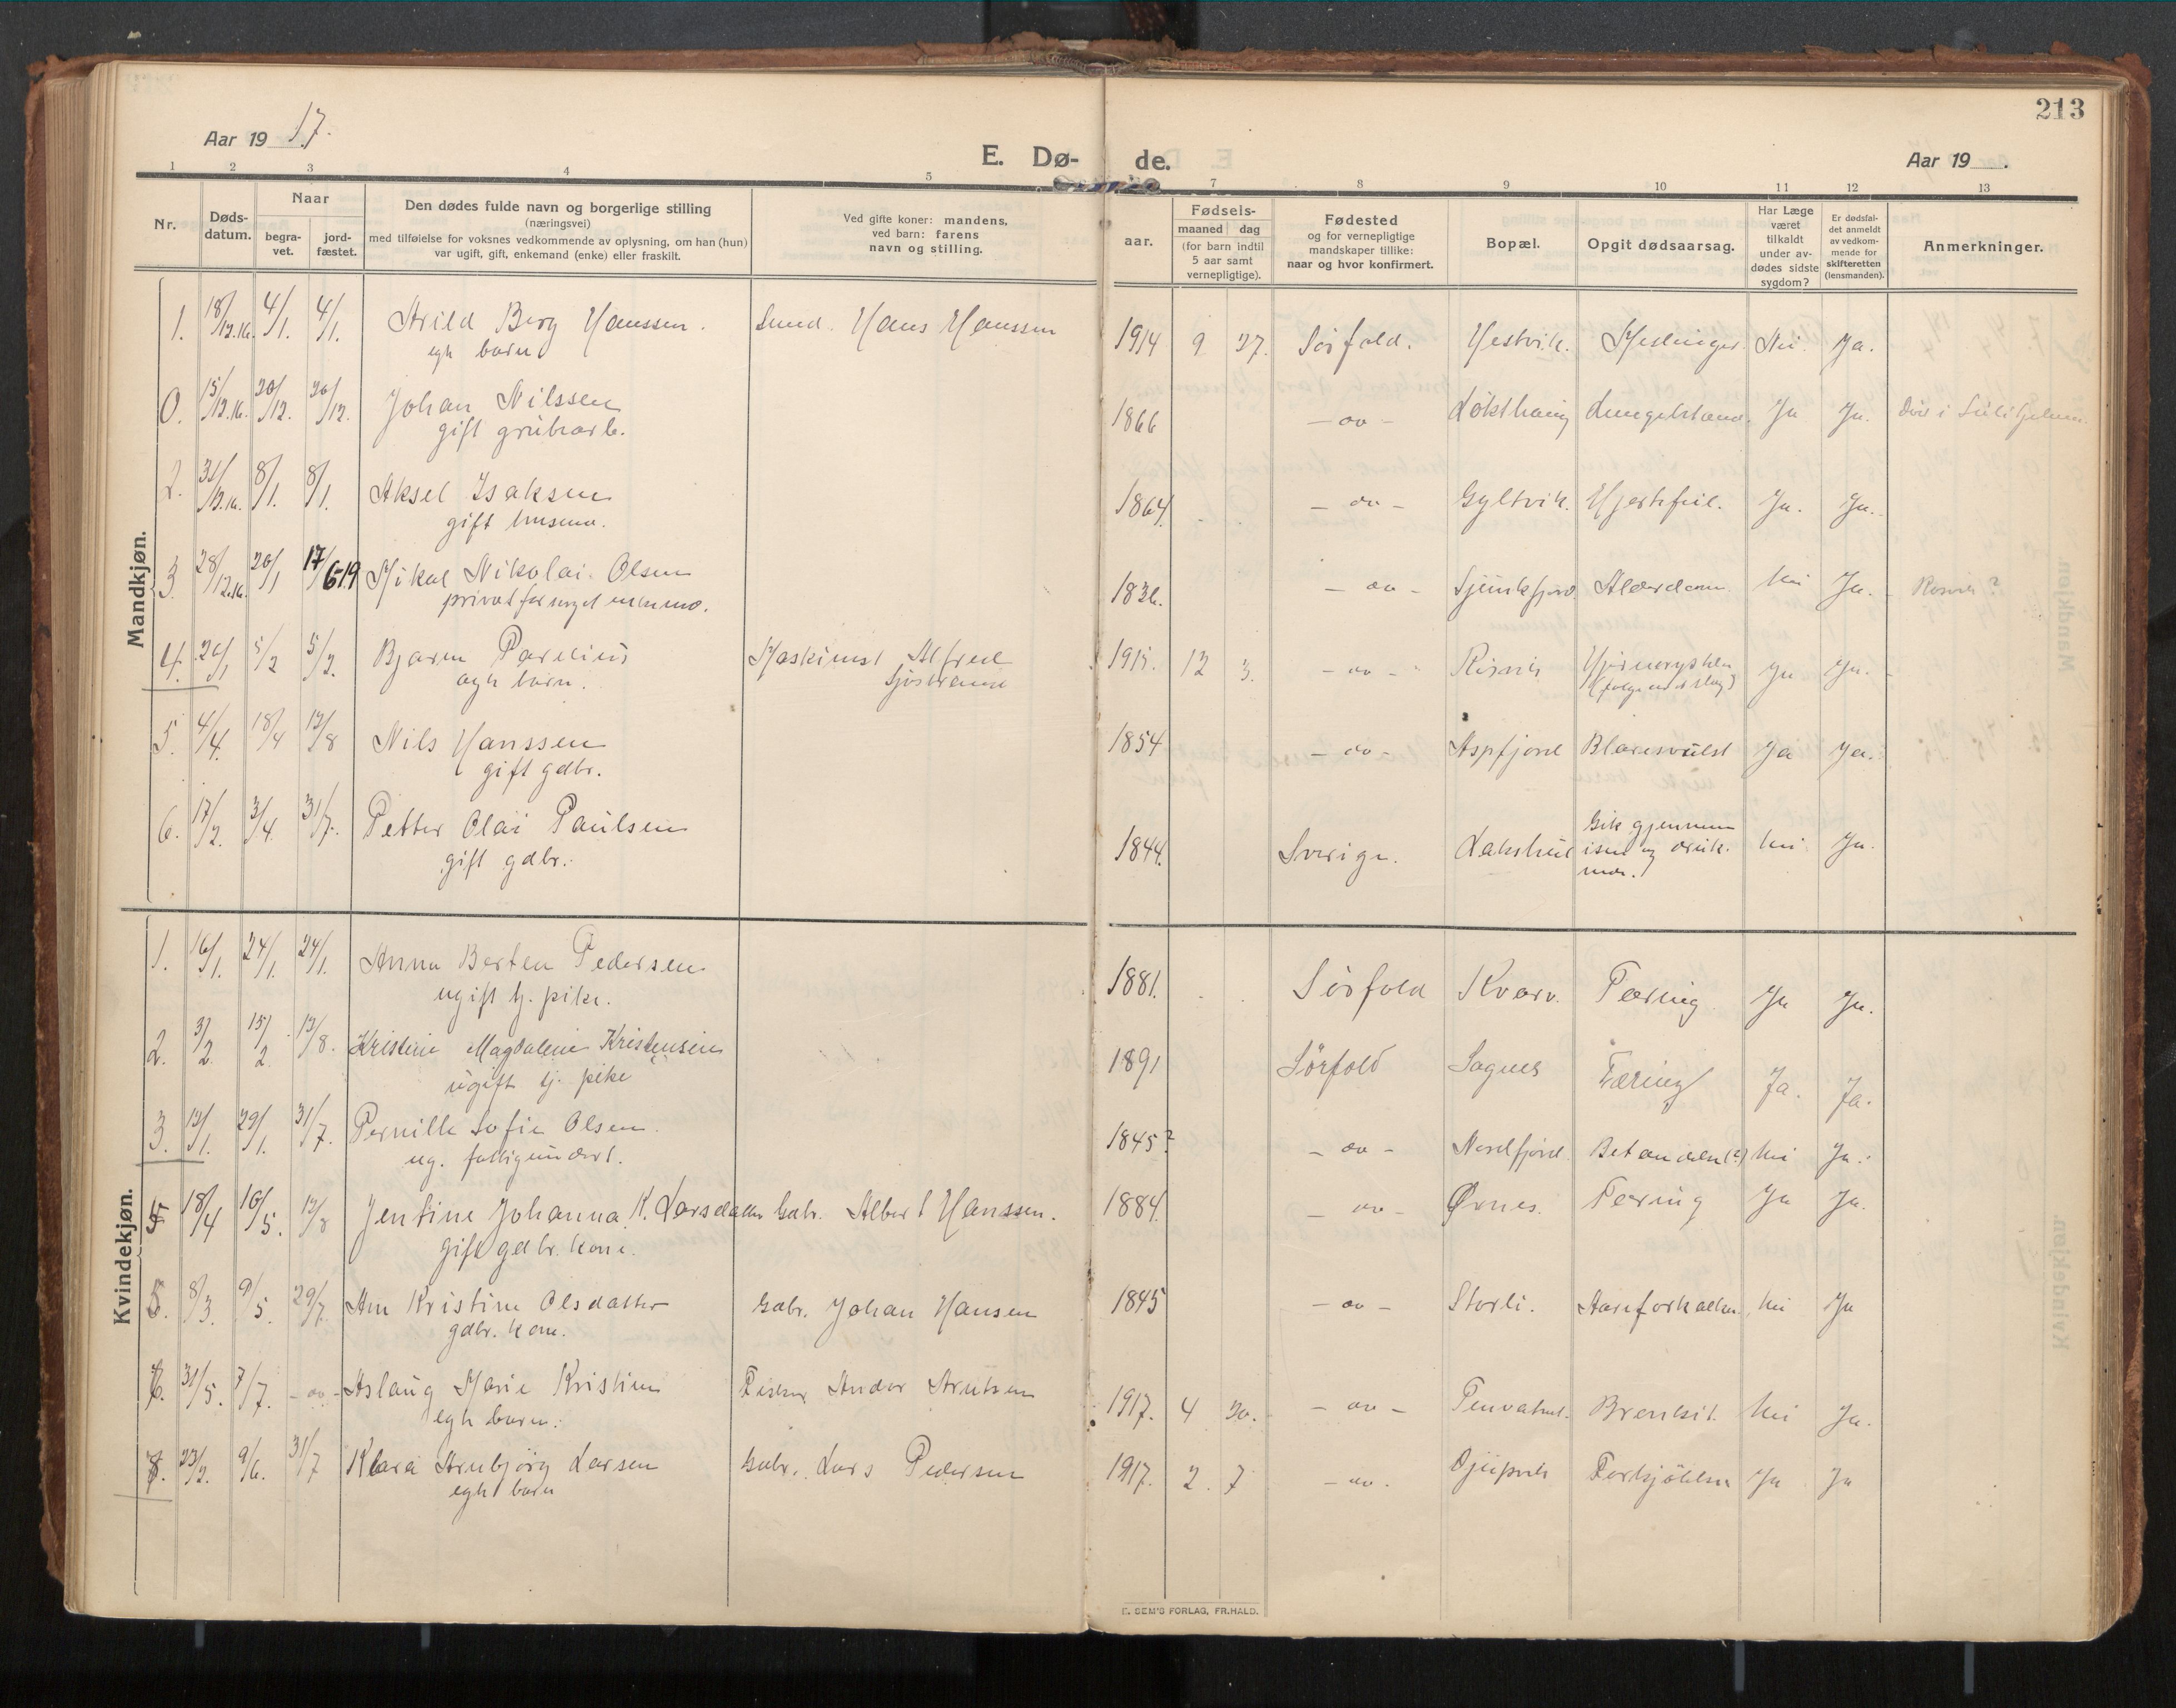 213
Aar 19 17.
E. Dø- de.
Aar 19 .
1 2 3 4 5 7 8 9 10 11 12 13
Nr.
Døds-
datum.
Naar
begra-
vet.
jord-
fæstet.
Den dødes fulde navn og borgerlige stilling
(næringsvei)
med tilføielse for voksnes vedkommende av oplysning, om han (hun)
var ugift, gift, enkemand (enke) eller fraskilt.
Ved gifte koner: mandens,
ved barn: farens
navn og stilling.
aar.
Fødsels-
maaned dag
(for barn indtil
5 aar samt
vernepligtige).
Fødested
og for vernepligtige
mandskaper tillike:
naar og hvor konfirmert.
Bopæl.
Opgit dødsaarsag.
Har Læge
været
tilkaldt
under av-
dødes sidste
sygdom?
Er dødsfal-
det anmeldt
av vedkom-
mende for
skifteretten
(lensmanden).
Anmerkninger.
Mandkjøn.
1. 18/12.16. 4/1. 4/1. Arild Berg Hanssen. Hans Hanssen 1914 9 27. Sörfold. Hestvik. Nei Ja.
egte barn
0. 15/12.16. 20/12. 20/12. Johan Nilssen 1866 - do - Ja Ja. Död i Sulitjelma.
gift grubearb.
2. 31/12.16. 8/1. 8/1. Aksel Isaksen 1864. - do - Gyltvik. Hjertefeil. Ja. Ja.
gift husmand.
3. 28/12.16. 20/1 17/6 19 Mikal Nikolai Olsen 1836. - do - Alderdom Nei Ja. Rosvik?
4. 26/1 5/2 5/2. Bjarne Parelius Maskinist Alfred 1915. 12 3. - do - Risvik Hjernerystelse Ja Ja.
egte barn. Sjöstrand
5. 4/4. 18/4 12/8 Nils Hanssen 1854 - do - Aspfjord Ja Ja.
gift gdbr.
6. 17/2. 3/4 31/7. Petter Olai Paulsen 1844. Sverige. Lakshul Gik gjennem Nei Ja.
gift gdbr. isen og druk-
nede.
Kvindekjøn.
1. 16/1. 24/1. 24/1. Anna Berten Pedersen 1881. Sörfold Kvarv. Tæring Ja Ja.
ugift tj. pike.
2. 3/2. 15/2 12/8. Kristine Magdalene Kristensen 1891 Sörfold Sagnes Tæring Ja. Ja.
ugift tj. pike
3. 12/1. 29/1. 31/7. Pernille Sofie Olsen 1845? - do - Nordfjord Nei Ja.
ug. fattigunderst.
4 18/4 16/5. 12/8 Jentine Johanna K. Larsdatter Gdbr. Albert Hanssen. 1884. - do - Ørnes. Tæring Ja Ja.
gift gdbr. kone.
5. 8/3. 9/5. 29/7. Ane Kristine Olsdatter Gdbr. Johan Hansen 1845 - do - Storli. Aareforkalkn. Nei Ja
gdbr. kone.
6. 31/5. 7/7. - do - Aslaug Marie Kristine Fisker Andor Arntsen 1917. 4 30. - do - Bronkit. Nei Ja.
egte barn.
7. 23/2. 9/6. 31/7 Klara Arnbjörg Larsen Gdbr. Lars Pedersen 1917. 2. 7 - do. Djupvik Forkjölelse Ja Ja
egte barn
E. SEM'S FORLAG, FR.HALD.